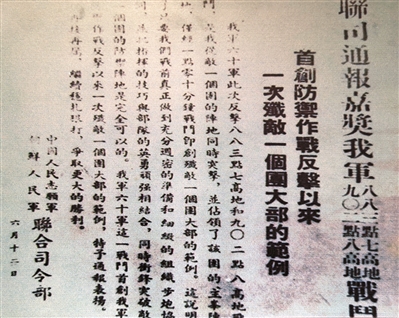 聯司通報嘉獎我軍八八三點七高地九〇二點八高地戰鬥
首創防禦作戰反擊以來
一次殲敵一個團大部的範例
我軍六十軍此次反擊八八三點七高地和九〇二點八高地
是我從敵一個團的陣地同時突擊,並佔領了該團的主要陣
僅經一點零十分鐘戰鬥即創殲敵一個團大部的範例。這說明
要我們戰前真正做到充分週密的準備和細緻的組織步炮協
指揮的技巧與部隊的英勇頑強相結合,同時衝鋒突破敵
個團的防禦陣地是完全可以的。我軍六十軍這一戰鬥首創我軍
作戰反擊以來一次殲敵一個團大部的範例,特予通報表揚。
再接再厲,繼續穩扎穩打,爭取更大的勝利。
中國人民志願軍
鮮人民軍
聯合司令部
六月十二日